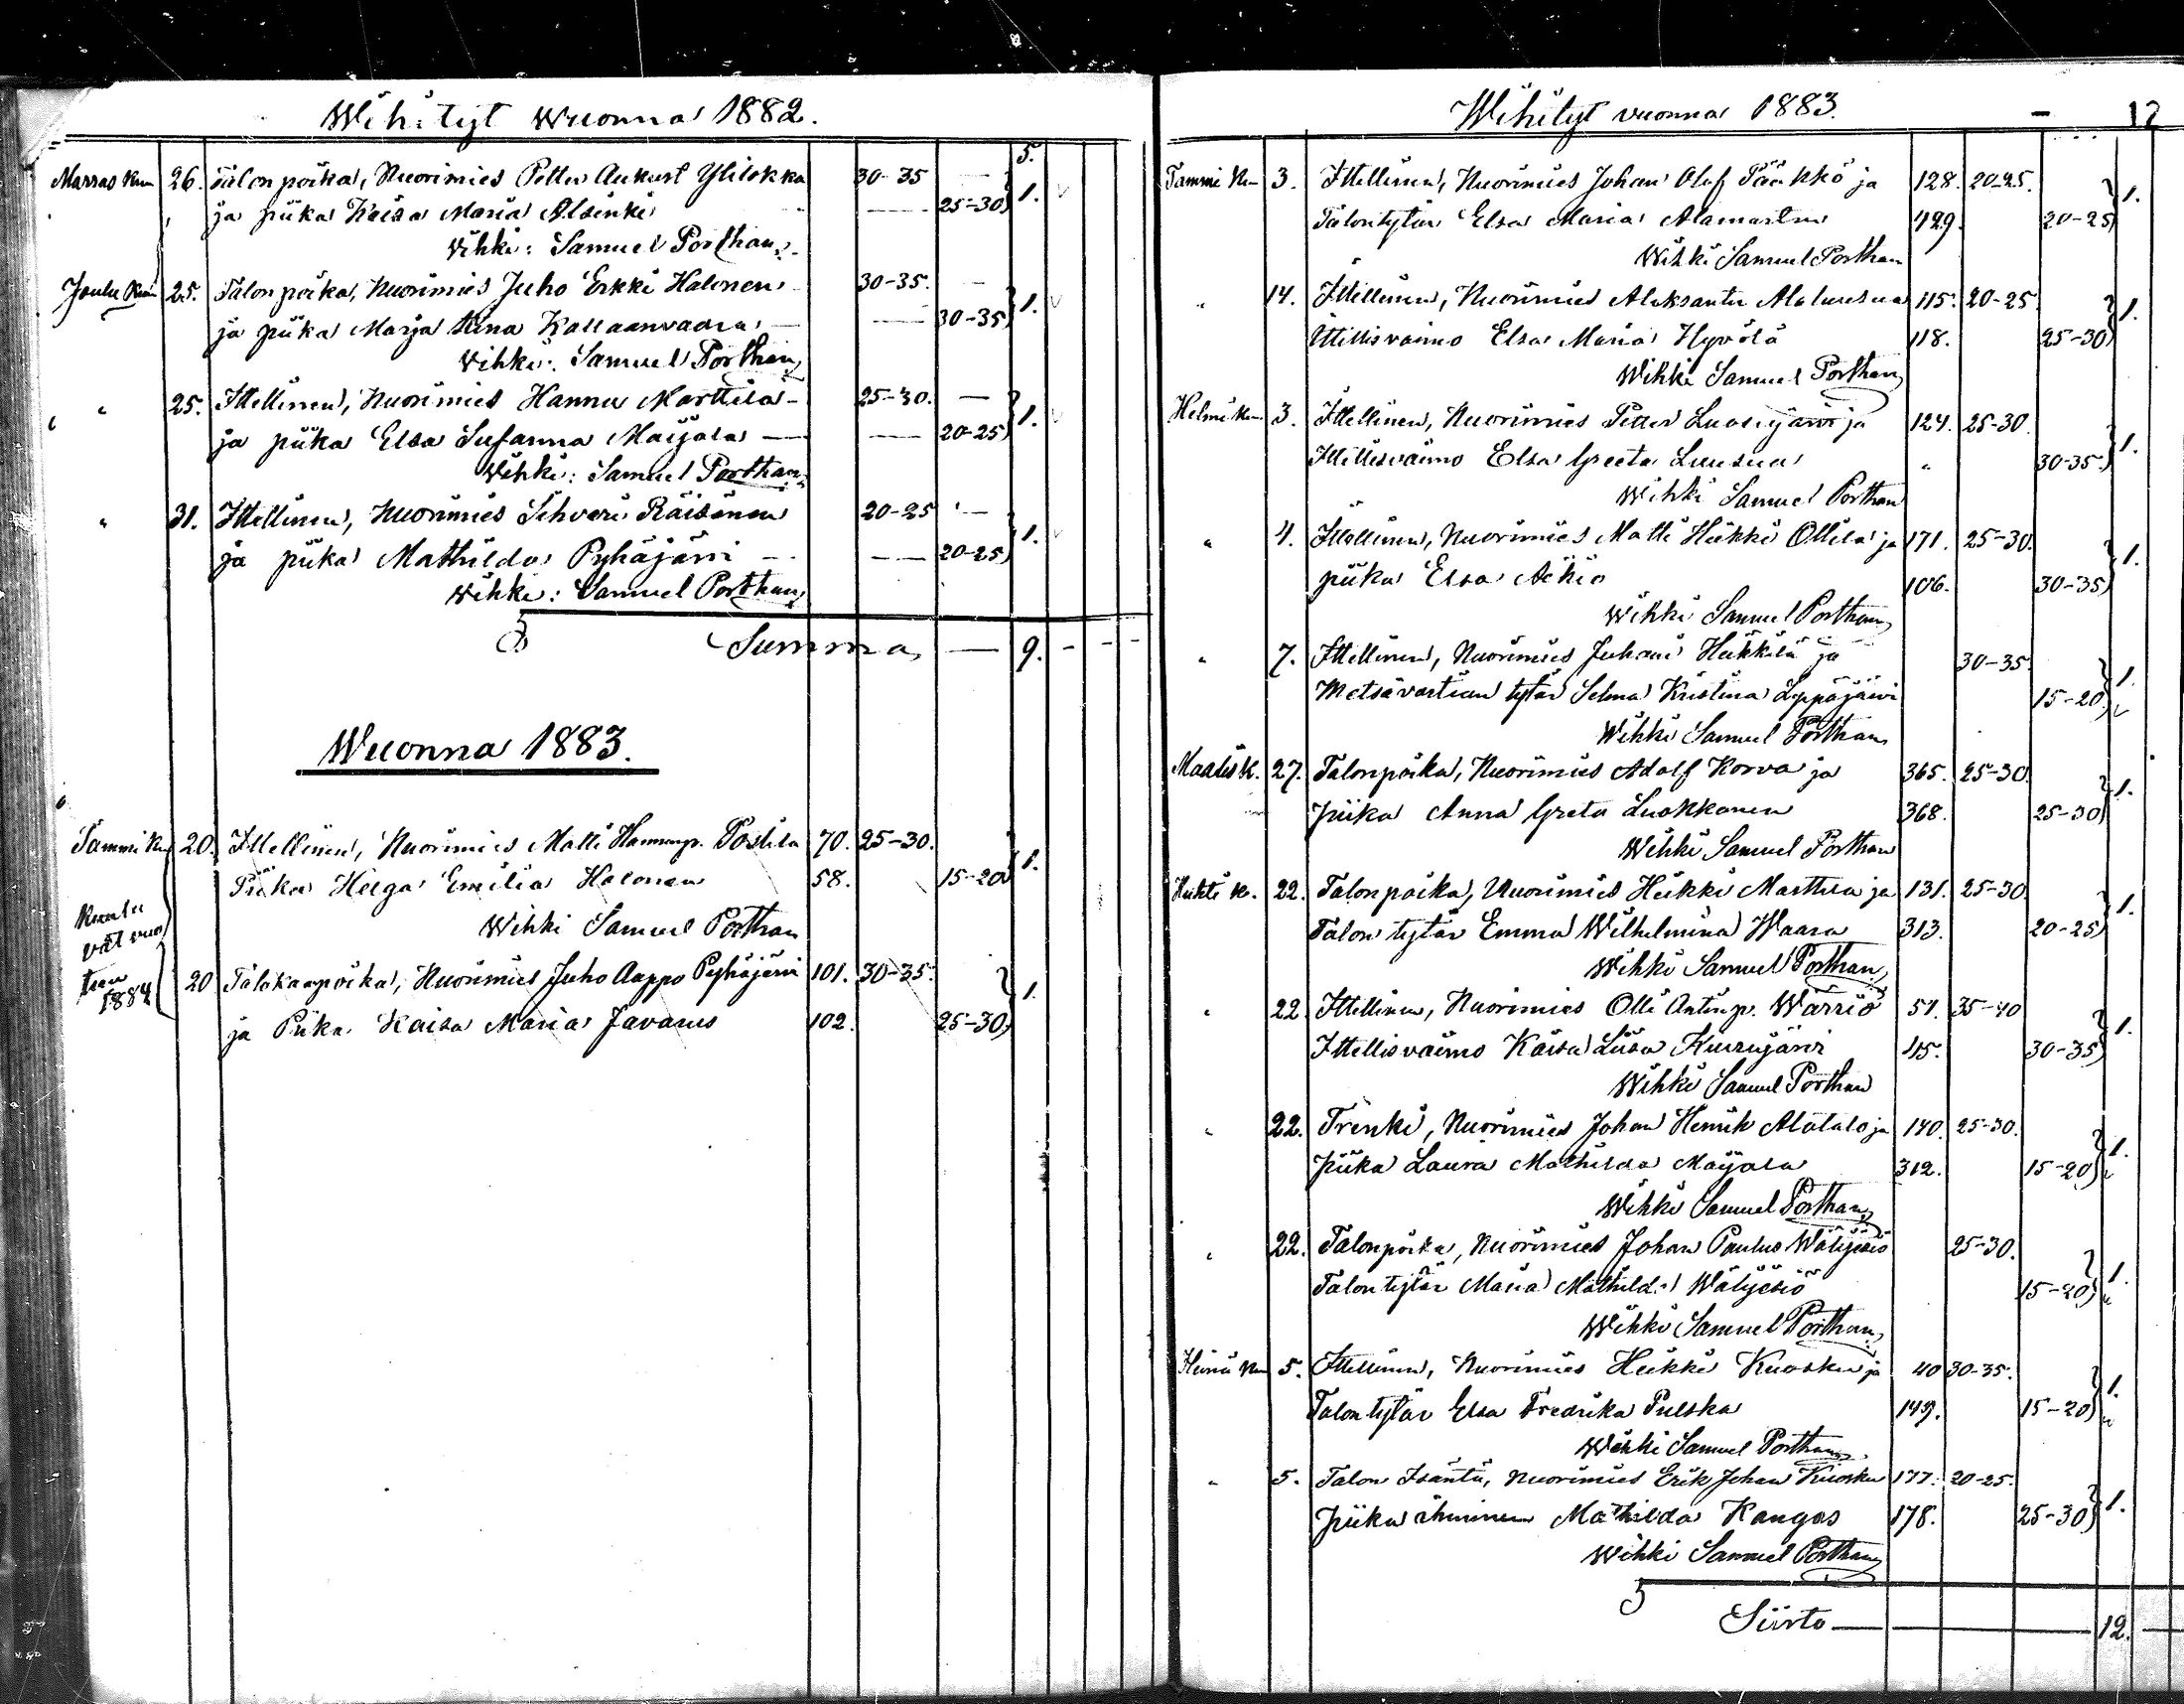 Wihityt Wuonna 1882.
5.
Marras Kuu 26. Talon poika, Nuorimies Petter Aukust Ylilokka 30-35 —
ja piika Kaisa Maria Alsinki — 25-30 1.
Vihki: Samuel Porthan.
Joulu Kuu 25. Talon poika, Nuorimies Juho Erkki Halonen 30-35. —
ja piika Marja Kallaanvaara — 30-35 1.
Vihki: Samuel Porthan
" 25. Ittellinen, Nuorimies Hannu Marttila 25-30. —
ja piika Elsa Susanna Maijala — 20-25 1.
Wihki: Samuel Porthan
" 31. Ittellinen, Nuorimies Sihveri Räisänen 20-25 —
ja piika Mathilda Pyhäjärvi — 20-25 1.
Wihki: Samuel Porthan
Summa — 9. - - -
Wuonna 1883.
Tammi Ku 20. Ittellinen, Nuorimies Matti Hannunp. Postila 70. 25-30.
Piika Helga Emilia Halonen 58. 15-20 1.
Wihki Samuel Porthan
Kuulu
vat vuo
teen
1884
20 Talokaapoika, Nuorimies Juho Aappo Pyhäjärvi 101. 30-35.
ja Piika Kaisa Maria Javarus 102. 25-30 1.
Wihityt vuonna 1883. — 12
Tammi K. 3. Ittellinen, Nuorimies Johan Olof Pääkkö ja 128. 20-25.
Talontytär Elsa Maria Alamartin 129. 20-25 1.
Wihki Samuel Porthan
" 14. Ittellinen, Nuorimies Aleksanteri Alaluusua 115. 20-25
Ittellisvaimo Elsa Maria Hyvölä 118. 25-30 1.
Wihki Samuel Porthan
Helmi K. 3. Ittellinen, Nuorimies Petter Luosujärvi ja 124. 25-30
Ittellisvaimo Elsa Greeta Luusua " 30-35. 1.
Wihki Samuel Porthan
" 4. Ittellinen, Nuorimies Matti Heikki Ollila ja 171. 25-30.
piika Elsa Äikiö 106. 30-35 1.
Wihki Samuel Porthan
" 7. Ittellinen, Nuorimies Juhani Heikkilä ja 30-35.
Metsävartian tytär Selma Kristina Leppäjärvi 15-20 1.
Wihki Samuel Porthan
Maalis K. 27. Talonpoika, Nuorimies Adolf Korva ja 365. 25-30.
Piika Anna Greta Luokkanen 368. 25-30 1.
Wihki Samuel Porthan
Huhti K. 22. Talonpoika, Nuorimies Heikki Marttila ja 131. 25-30
Talon tytär Emma Wilhelmina Waara 313. 20-25 1.
Wihki Samuel Porthan
" 22 Ittellinen, Nuorimies Olli Antinp. Wärriö 51. 35-40
Ittellisvaimo Kaisa Liisa Kuusijärvi 115. 30-35 1.
Wihki Samuel Porthan
" 22. Trenki, Nuorimies Johan Henrik Alatalo ja 140. 25-30.
Piika Laura Mathilda Maijala 312. 15-20 1.
Wihki Samuel Porthan
" 22. Talonpoika, Nuorimies Johan Paulus Wälijesiö 25-30.
Talontytär Maria Mathilda Wälijesiö 15-20 1.
Wihki Samuel Porthan
Heinä K. 5. Ittellinen, Nuorimies Heikki Kuosku ja 40 30-35.
Talontytär Elsa Fredrika Pulska 149. 15-20 1.
Wihki Samuel Porthan
" 5. Talon Isäntä, Nuorimies Erik Johan Kuosku 177. 20-25.
Piika ihminen Mathilda Kangas 178. 25-30 1.
Wihki Samuel Porthan
Siirto — 12.